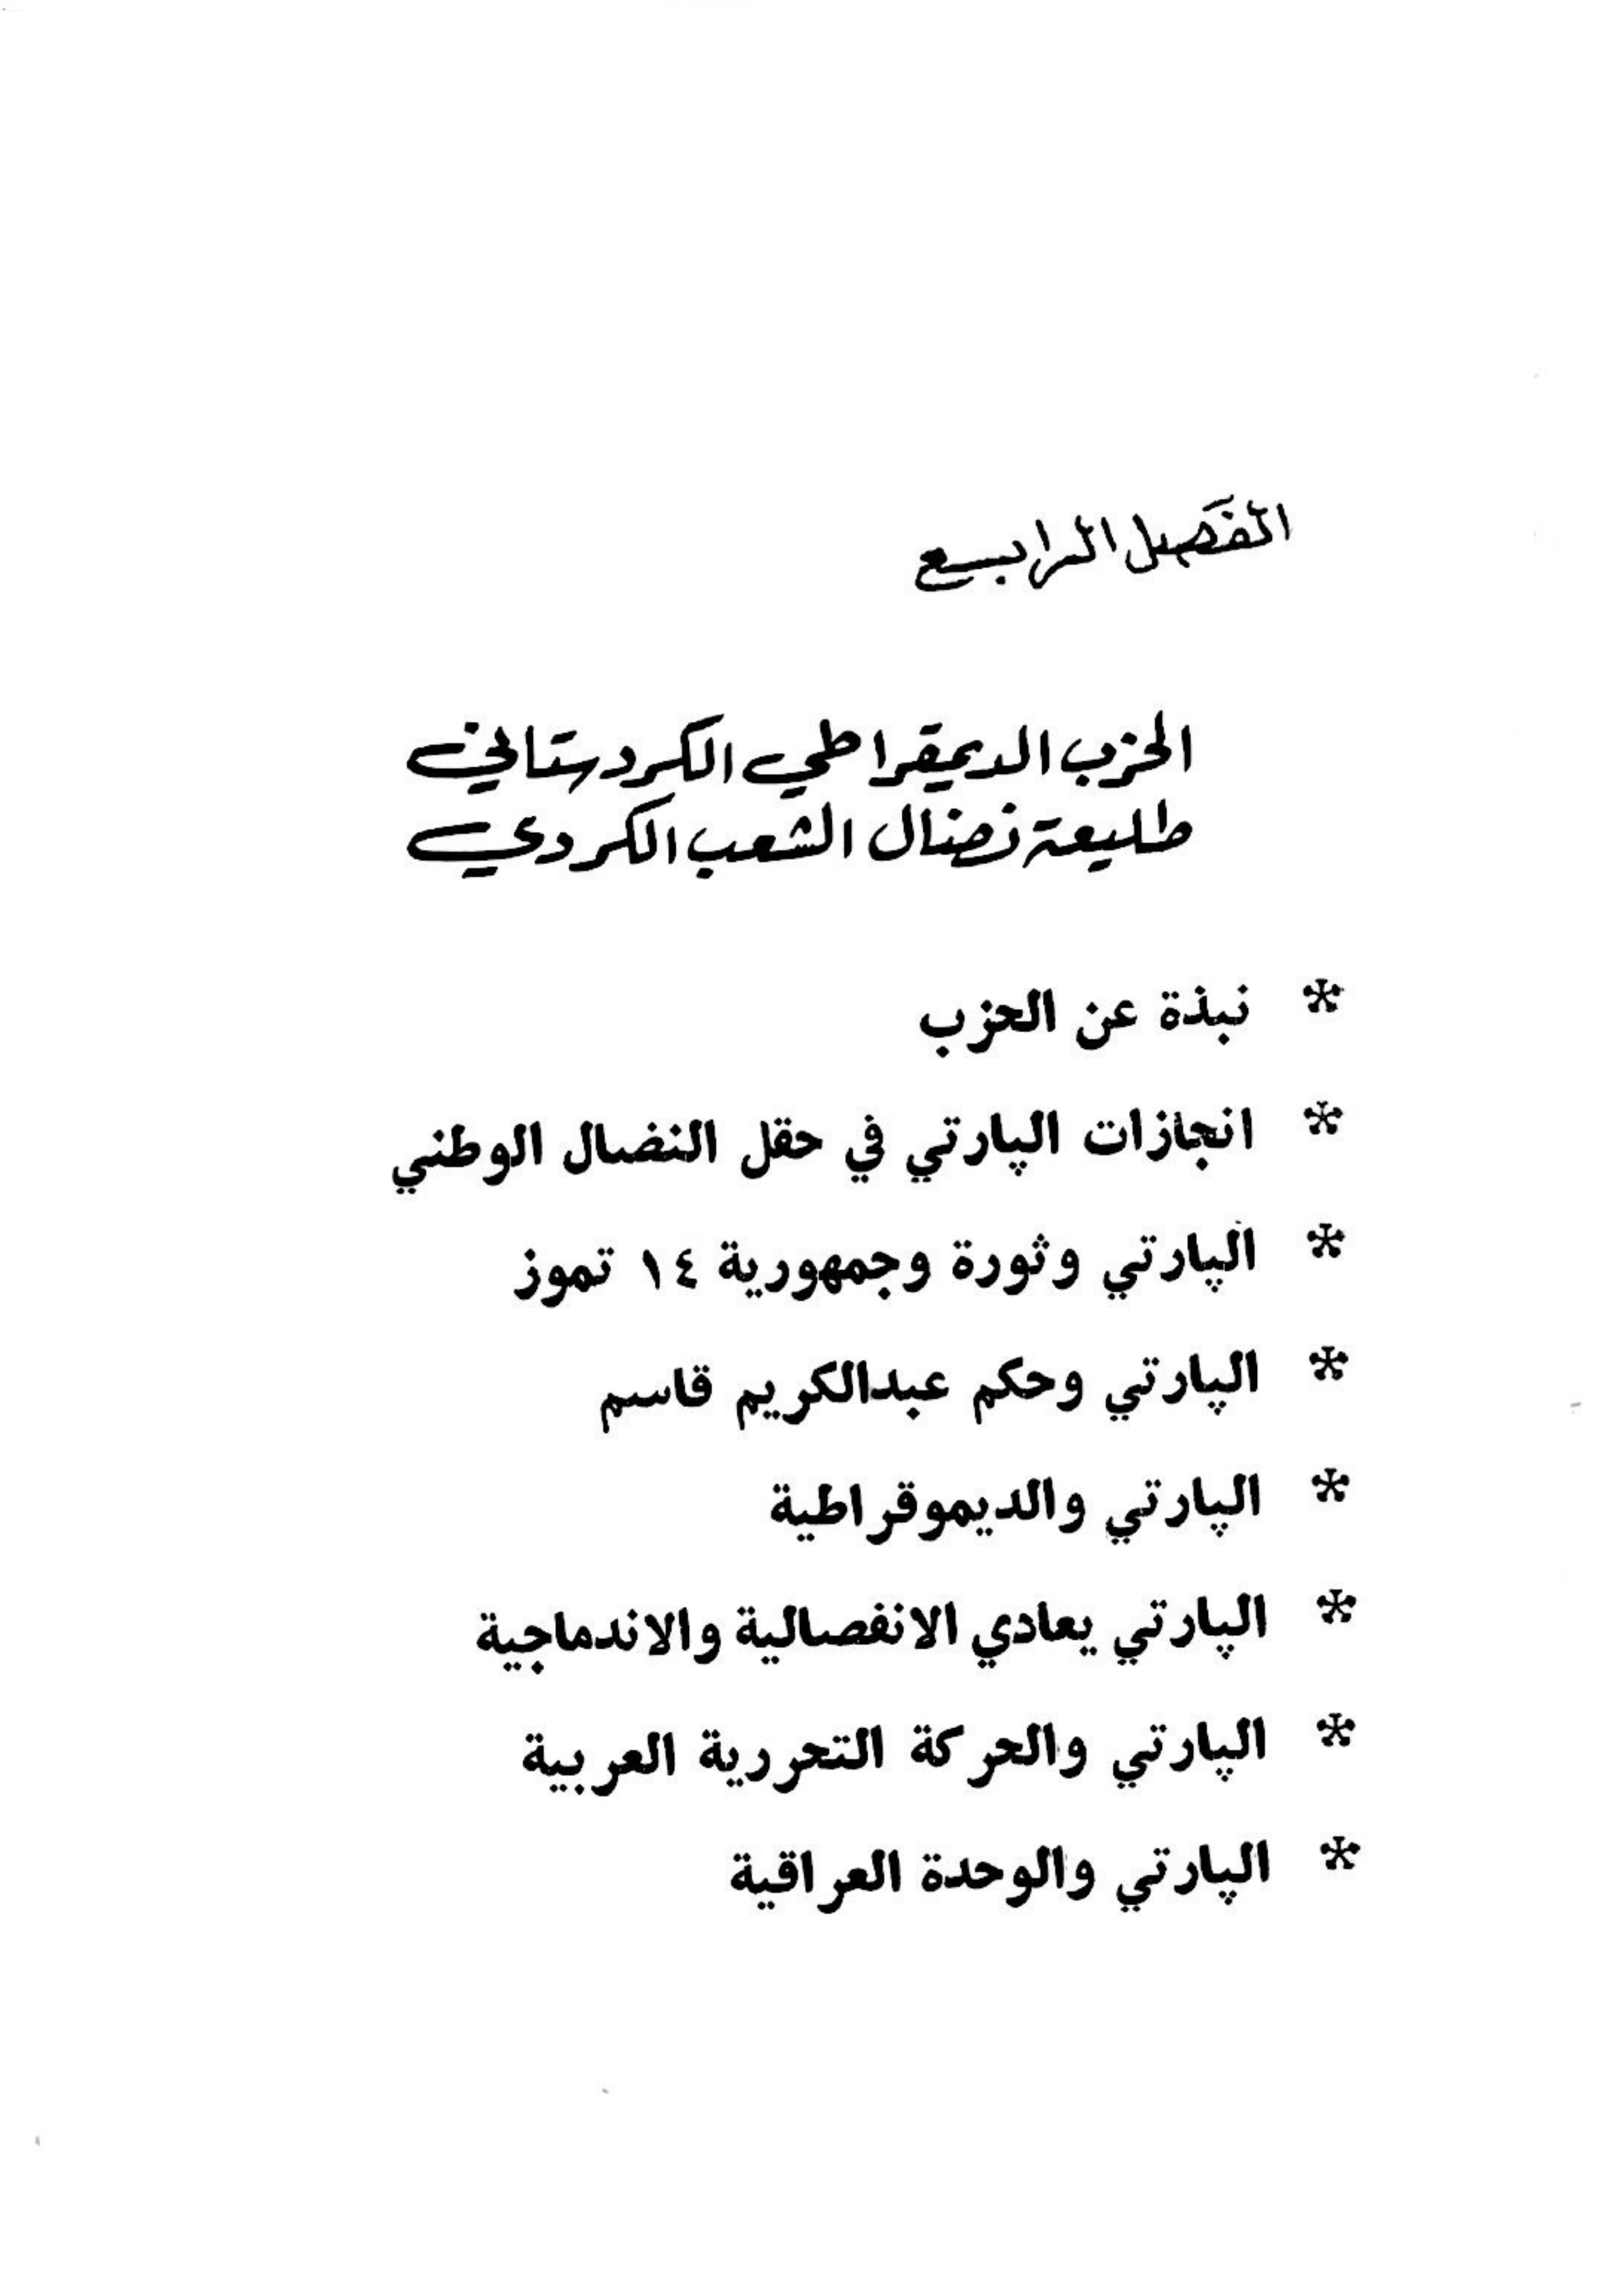 الفصل الرابع
الحزب الديمقراطي الكردستاني
طليعة نضال الشعب الكردي
* نبذة عن الحزب
* انجازات الپارتي في حقل النضال الوطني
* الپارتي وثورة وجمهورية ١٤ تموز
* الپارتي وحكم عبدالكريم قاسم
* الپارتي والديموقراطية
* الپارتي يعادي الانفصالية والاندماجية
* الپارتي والحركة التحررية العربية
* الپارتي والوحدة العراقية